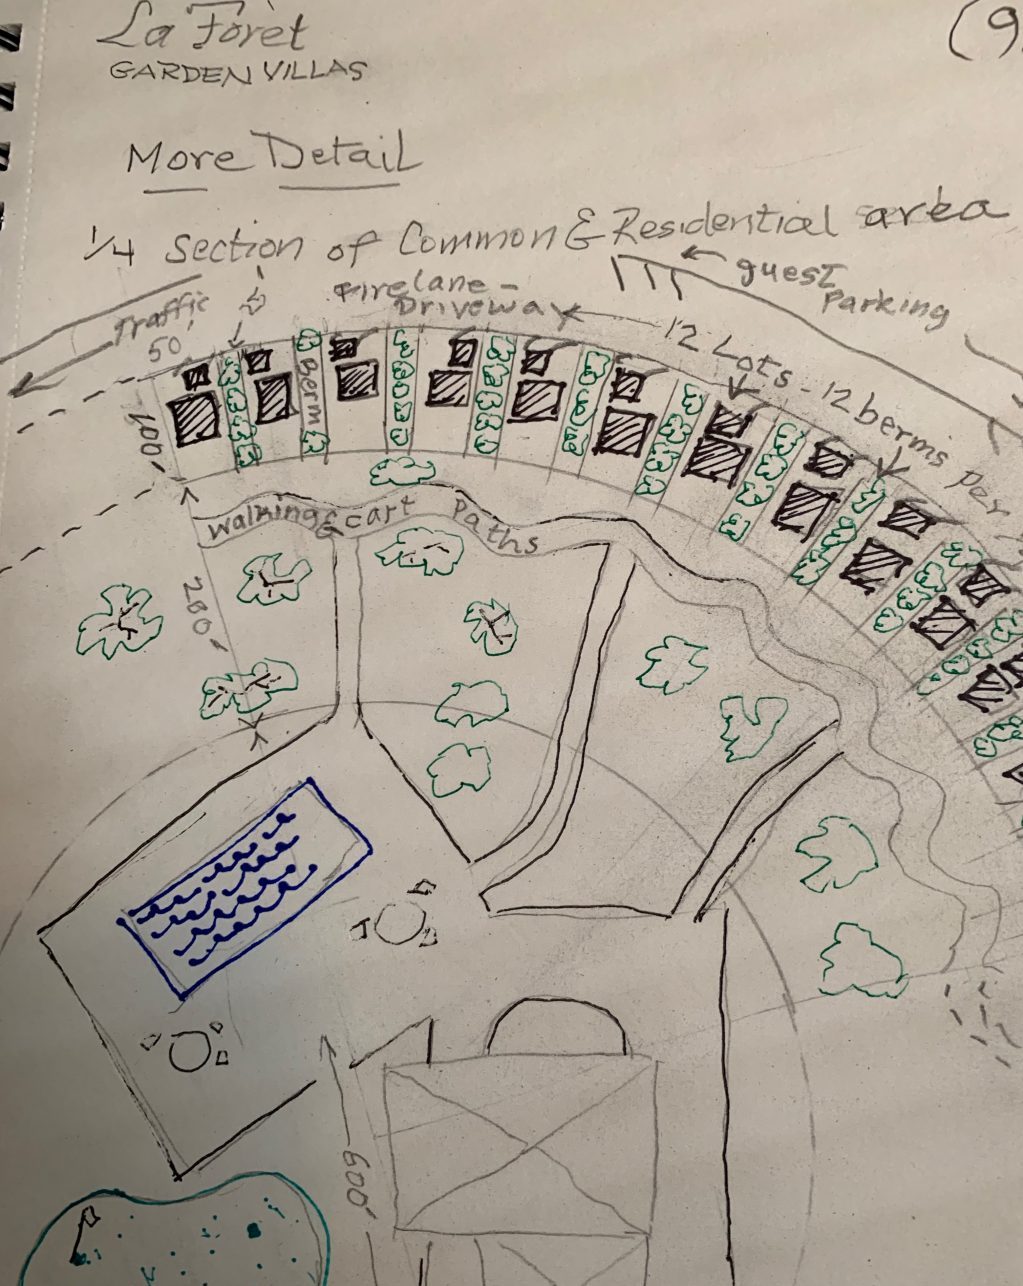 La Forêt
(9
GARDEN VILLAS
More Detail
1/4 Section of Common & Residential area
guest
Parking
Firelane -
Driveway
Traffic
50'
12 Lots - 12 berms per
100'
Berm
Walking & cart Paths
200'
600'